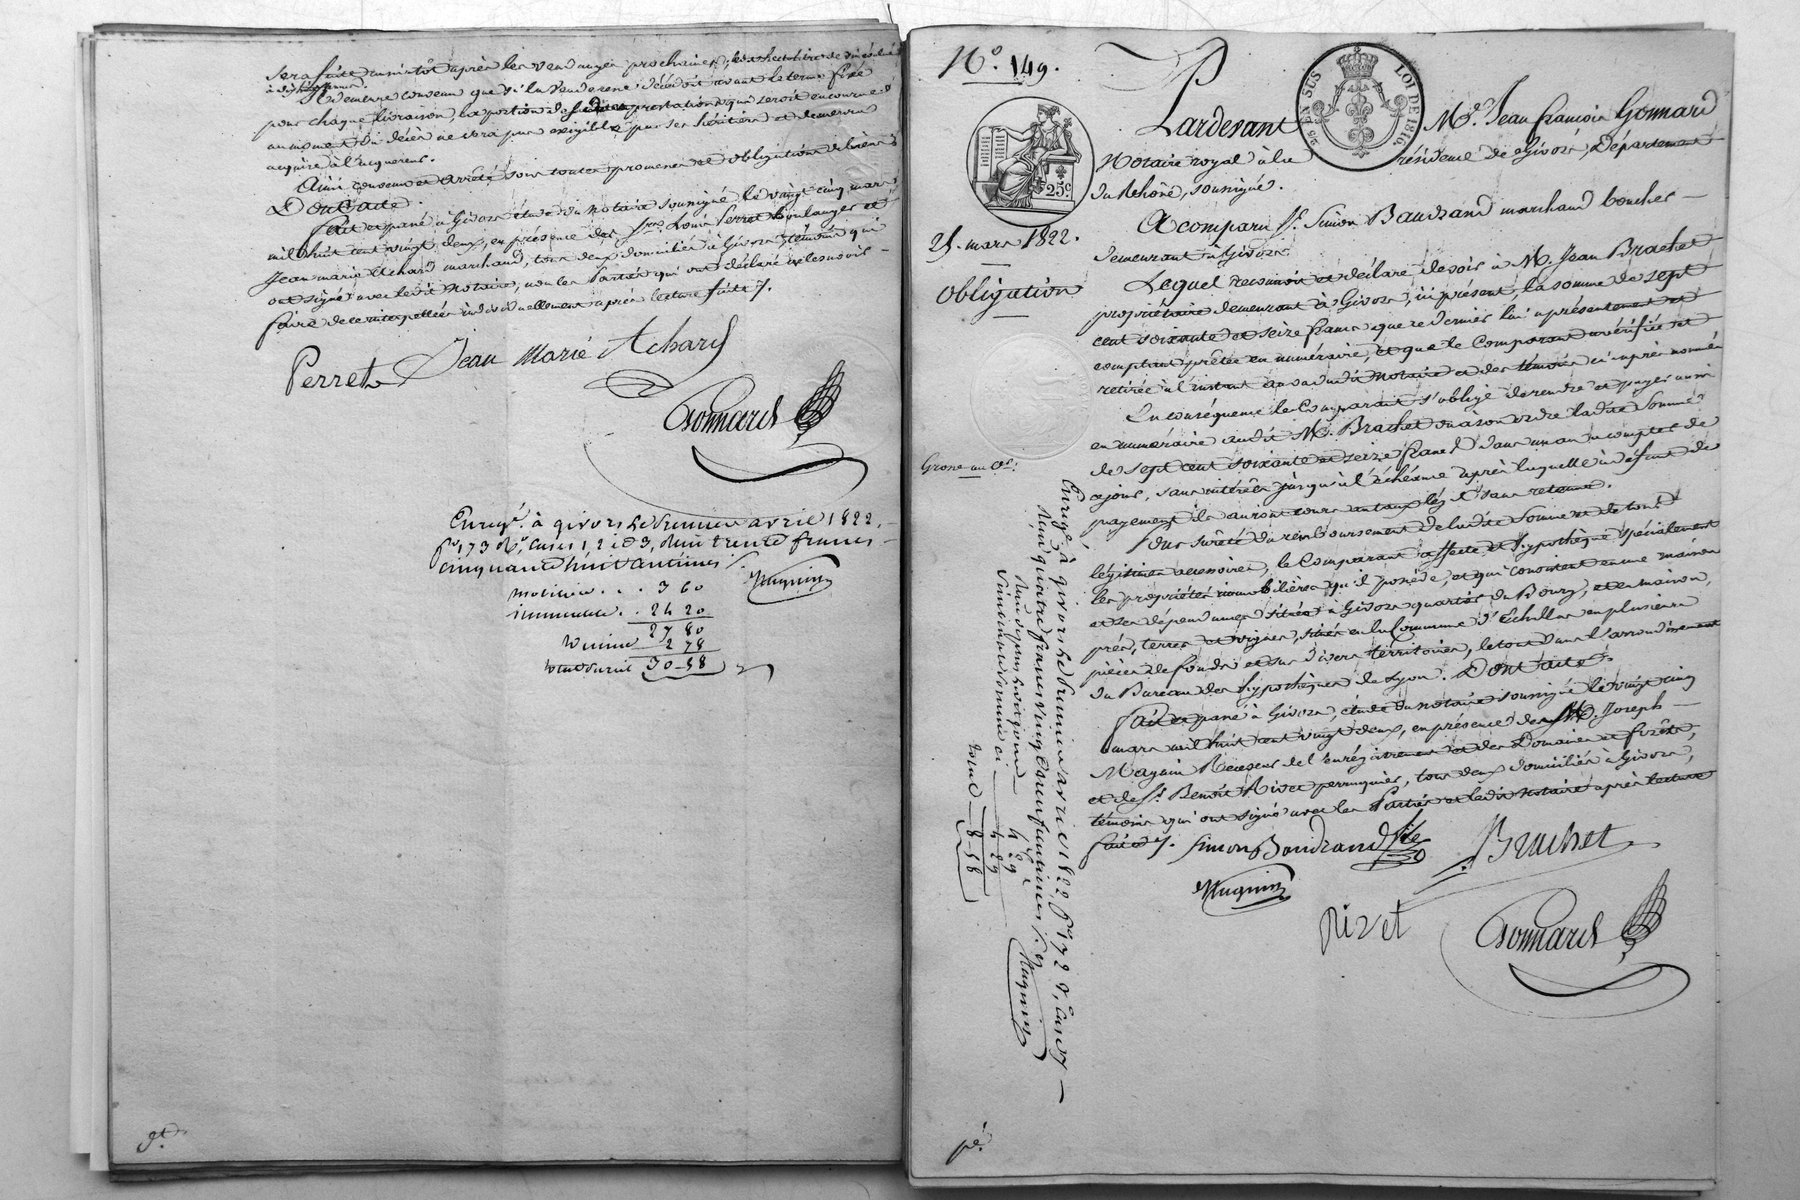 sera faite aussitôt après les vendanges prochaines,
Il demeure convenu que si la venderesse décédoit avant le terme fixé
pour chaque livraison, la portion desdites prestations qui seroit encourue
au moment du décès ne sera pas exigible par ses héritiers et demeurera
acquise à l'acquereur.
Ainsi convenu et arrêté sous toutes promesses et obligations de biens
Dont acte.
Fait et passé à Givors étude du notaire soussigné le vingt cinq mars
mil huit cent vingt deux, en présence des Srs Louis Perret boulanger et
Jean marie Achard marchand, tous deux domiciliés à Givors, témoins qui
ont signé avec ledit notaire, non les parties qui ont déclaré ne le savoir
faire de ce interpellées individuellement après lecture faite ./.
Perret Jean Marie Achard
Gonnard
Enregé. à givors le premier avril 1822,
fo. 173 Ro. cases 1, 2 et 3, Reçu trente francs
cinquante huit centimes
Mugnier
mobilier . . . 3 60
immeuble . . 24 20
27 80
Dixième 2 78
30-58
No. 149.
25 EN SUS LOI DE 1816
25c.
Pardevant Me. Jean françois Gonnard
Notaire royal à la résidence de Givors, Département
du Rhône, soussigné.
25. mars 1822.
Obligation
A comparu Sr. Simon Baudrand marchand boucher
demeurant à Givors
Lequel reconnoit et déclare devoir à M. Jean Brachet
propriétaire demeurant à Givors, ici présent, la somme de sept
cent soixante et seize francs que ce dernier lui a présentement et
comptant prêtée en numéraire, et que le Comparant a vérifiée et
retirée à l'instant au vu dudit notaire et des témoins ci après nommés
En conséquence le Comparant s'oblige de rendre et payer aussi
en numéraire audit M. Brachet ou à son ordre ladite Somme
de sept cent soixante et seize francs dans un an à compter de
Grosse au Cr.
ce jour, sans intérêts jusqu'à l'échéance après laquelle à défaut de
payement ils auront cours au taux légal sans retenue.
Pour sureté du remboursement de ladite Somme et de tous
légitimes accessoires, le Comparant affecte et hypothèque spécialement
les propriétés immobilières qu'il possède, et qui consistent en une maison
et ses dépendances situées à Givors quartier du Bourg, et en maison,
prés, terres et vignes, situés en la Commune d'Echallas en plusieurs
pièces de fonds et sur divers territoires, le tout dans l'arrondissement
du Bureau des hypothèques de Lyon. Dont acte.
Fait et passé à Givors, étude du notaire soussigné le vingt cinq
mars mil huit cent vingt deux, en présence de M. Joseph
Receveur de l'enregistrement et des Domaines et forêts,
et de Sr. Benoit Rivet perruquier, tous deux domiciliés à Givors,
témoins qui ont signé avec les Parties et ledit notaire après lecture
faite ./. Simon Baudrand Brachet
Mugnier
Rivet Gonnard
Enregé. à givors le premier avril 1822, fo. 172 Vo. Case 7
8-58
Mugnier